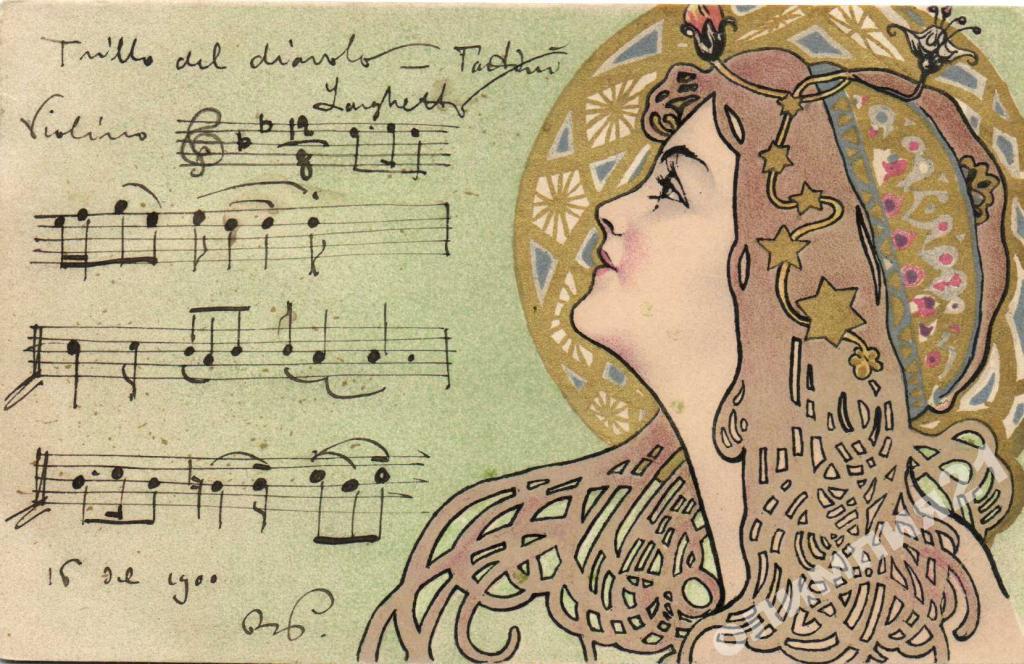 Trillo del diavolo — Tartini
Larghetto
Violino
12
8
16 del 1900